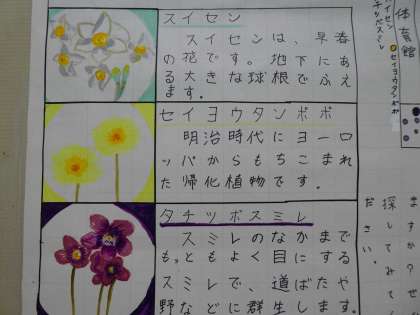 スイセン
スイセンは、早春
の花です。地下にあ
る大きな球根でふえ
ます。
セイヨウタンポポ
明治時代にヨーロ
ッパからもちこまれ
た帰化植物です。
タチツボスミレ
スミレのなかまで
もっともよく目にする
スミレで、道ばたや
野などに群生します。
体育館
セイヨウタンポポ
ますか?ぜ
探してみてく
ださい。